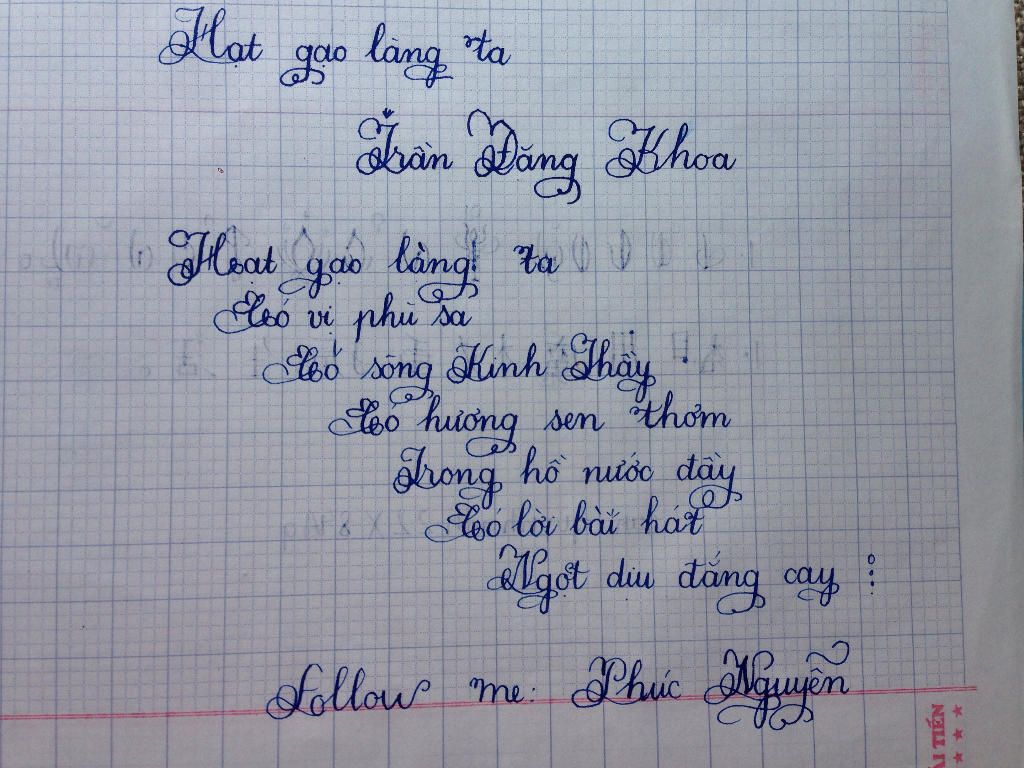 Hạt gạo làng ta
Trần Đăng Khoa
Hạt gạo làng ta
Có vị phù sa
Có sông Kinh Thầy
Có hương sen thơm
Trong hồ nước đầy
Có lời bài hát
Ngọt dịu đắng cay :
Follow me: Phúc Nguyễn
ẢI TIẾN